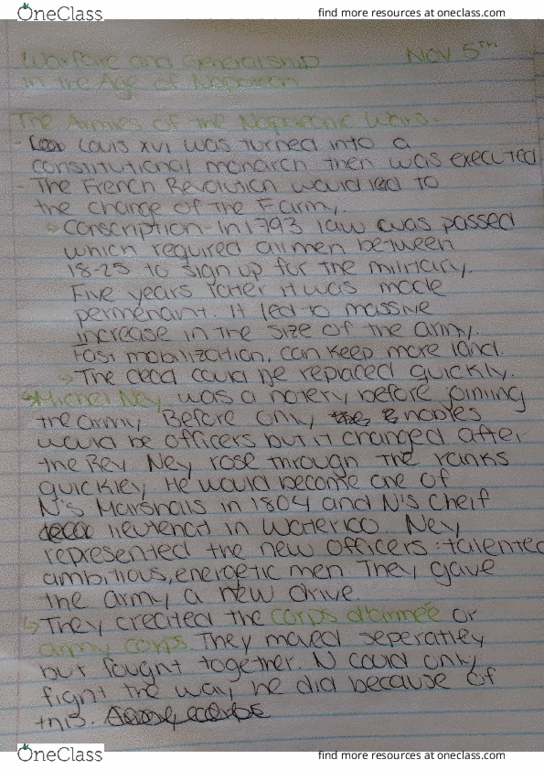 OneClass
find more resources at oneclass.com
Warfare and Generalship Nov 5th
in the Age of Napoleon
The Armies of the Napoleonic Wars.
- Louis XVI was turned into a
constitutional monarch then was executed
- The French Revolution would led to
the change of the F army.
→ Conscription - In 1793 law was passed
which required all men between
18-25 to sign up for the military.
Five years later it was made
permenant. It led to massive
increase in the size of the army.
Fast mobilization, can keep more land.
→ The dead could be replaced quickly.
→ Michel Ney was a notery before joining
the army. Before only the nobles
would be officers but it changed after
the Rev. Ney rose through the ranks
quickley. He would become one of
N's Marshals in 1804 and N's Cheif
lieutenant in Waterloo. Ney
represented the new officers: talented
ambitious, energetic men. They gave
the army a new drive.
↳ They created the corps d'armée or
army corps. They moved seperatley
but fought together. N could only
fight the way he did because of
this.
OneClass
find more resources at oneclass.com